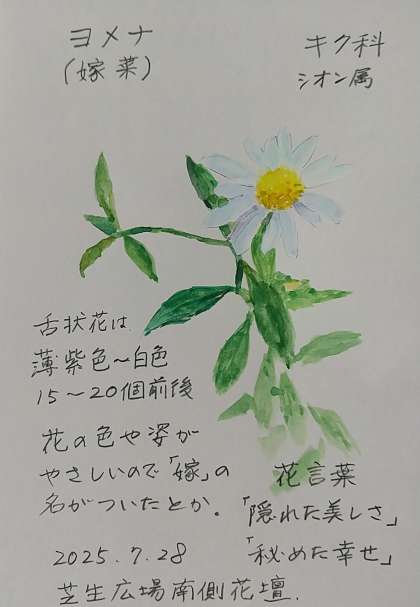 ヨメナ
(嫁菜)
キク科
シオン属
舌状花は
薄紫色～白色
15～20個前後
花の色や姿が
やさしいので「嫁」の
名がついたとか。
花言葉
「隠れた美しさ」
「秘めた幸せ」
2025.7.28
芝生広場南側花壇.